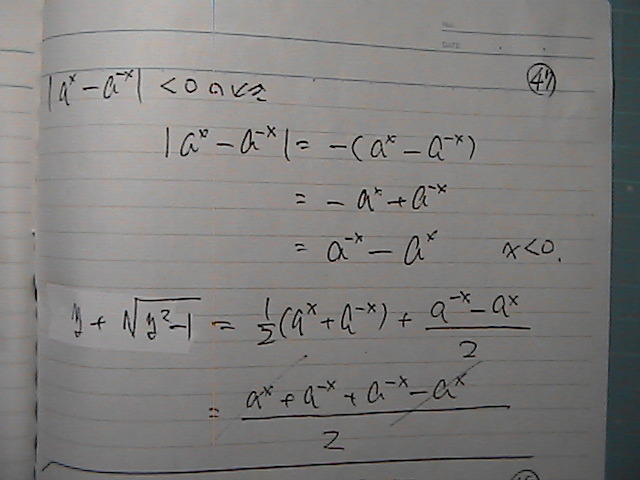 No.
DATE
㊼
|aˣ − a⁻ˣ| < 0 のとき
|aˣ − a⁻ˣ| = −(aˣ − a⁻ˣ)
= − aˣ + a⁻ˣ
= a⁻ˣ − aˣ x<0.
y + √(y²−1) = 1/2 (aˣ + a⁻ˣ) + (a⁻ˣ − aˣ)/2
= (aˣ + a⁻ˣ + a⁻ˣ − aˣ)/2